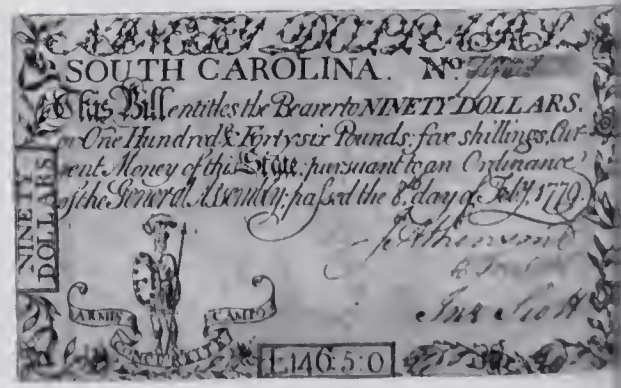 SOUTH CAROLINA. No.
This Bill entitles the Bearer to NINETY DOLLARS.
or One Hundred & Forty six Pounds: five shillings, Cur
rent Money of this State: pursuant to an Ordinance
of the General Assembly: passed the 8th day of Feby. 1779.
NINETY
DOLLARS
ARMIS
CAMPO
L.146:5:0